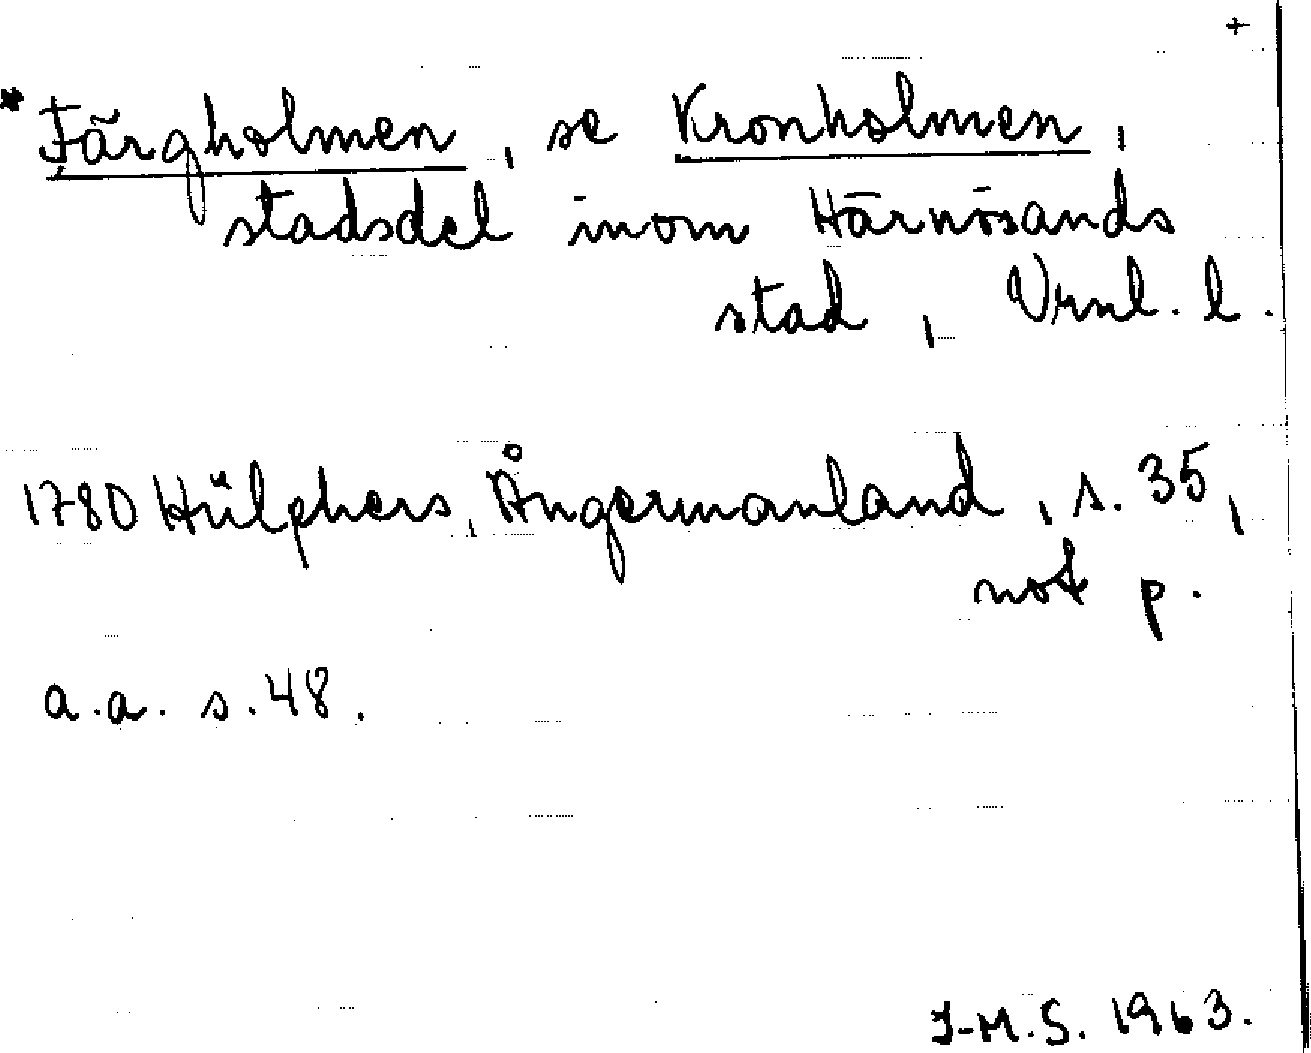 +
* Färgholmen, se Kronholmen,
stadsdel inom Härnösands
stad, Vrnl. l.
1780 Hülphers, Ångermanland, s. 35,
not p.
a.a. s. 48.
J-M.S. 1963.